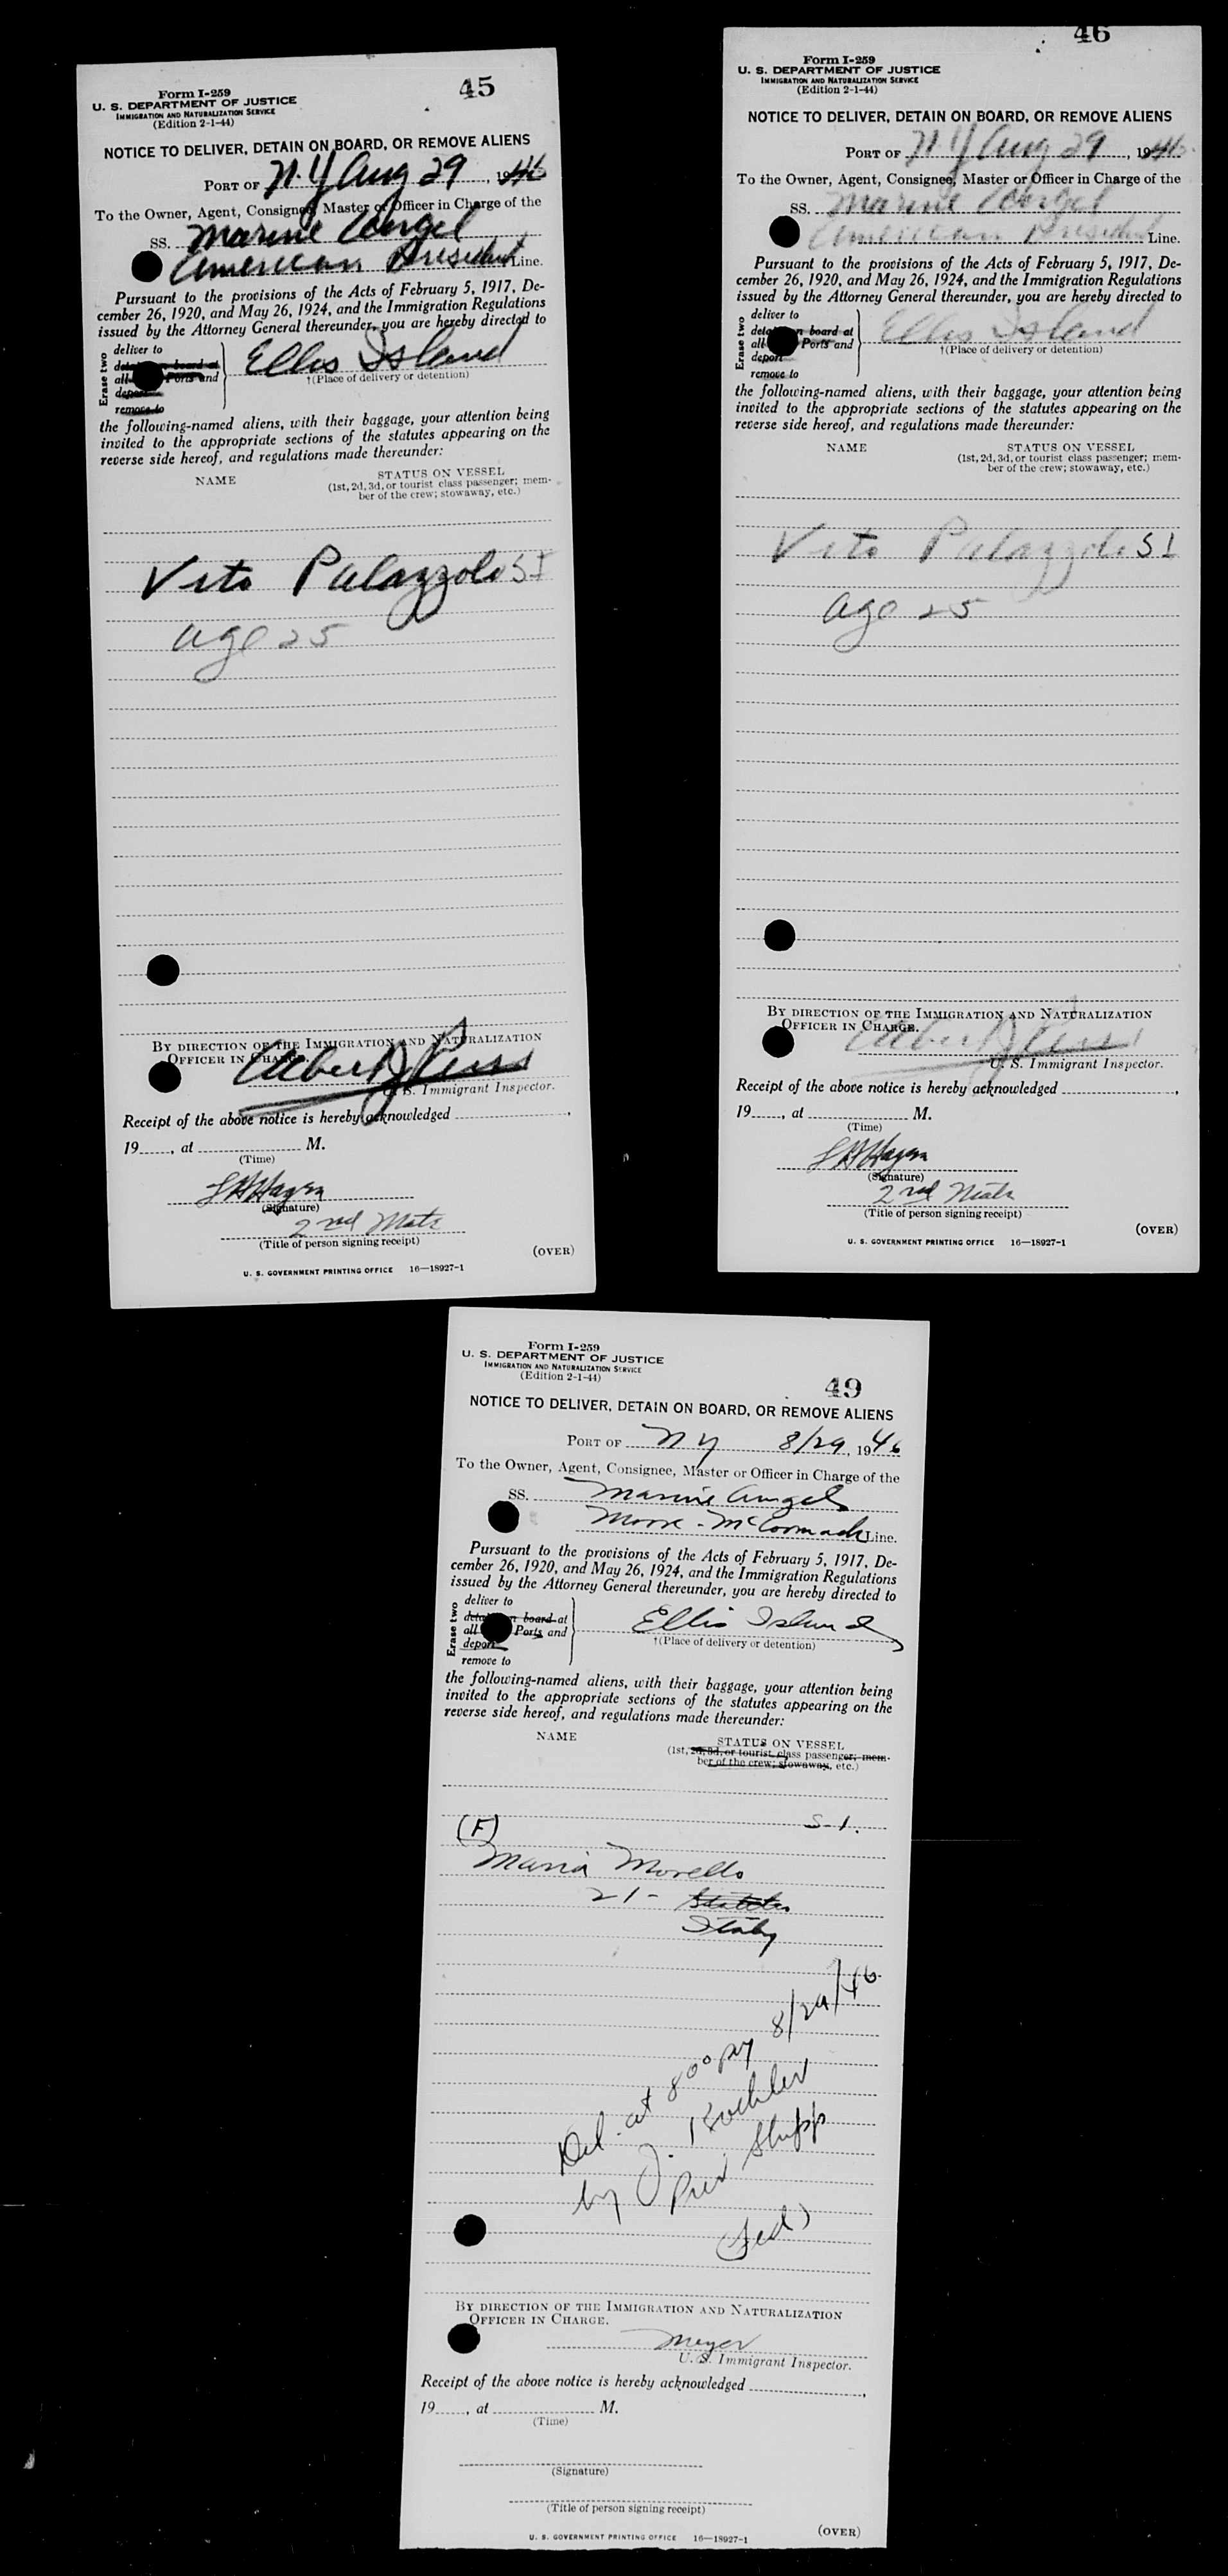 45
Form I-259
U. S. DEPARTMENT OF JUSTICE
IMMIGRATION AND NATURALIZATION SERVICE
(Edition 2-1-44)
NOTICE TO DELIVER, DETAIN ON BOARD, OR REMOVE ALIENS
PORT OF N. Y Aug 29, 1946
To the Owner, Agent, Consignee, Master or Officer in Charge of the
SS. Marine Angel
American President Line.
Pursuant to the provisions of the Acts of February 5, 1917, De-
cember 26, 1920, and May 26, 1924, and the Immigration Regulations
issued by the Attorney General thereunder, you are hereby directed to
Erase two
deliver to
board at
all Ports and
remove to
Ellis Island
†(Place of delivery or detention)
the following-named aliens, with their baggage, your attention being
invited to the appropriate sections of the statutes appearing on the
reverse side hereof, and regulations made thereunder:
NAME
STATUS ON VESSEL
(1st, 2d, 3d, or tourist class passenger; mem-
ber of the crew; stowaway, etc.)
Vito Palazzolo S I
age 25
BY DIRECTION OF THE IMMIGRATION AND NATURALIZATION
OFFICER IN CHARGE.
Albert J
U. S. Immigrant Inspector.
Receipt of the above notice is hereby acknowledged
19, at M.
(Time)
Hagen
(Signature)
2nd Mate
(Title of person signing receipt)
(OVER)
U. S. GOVERNMENT PRINTING OFFICE 16—18927-1
46
Form I-259
U. S. DEPARTMENT OF JUSTICE
IMMIGRATION AND NATURALIZATION SERVICE
(Edition 2-1-44)
NOTICE TO DELIVER, DETAIN ON BOARD, OR REMOVE ALIENS
PORT OF N. Y Aug 29, 1946
To the Owner, Agent, Consignee, Master or Officer in Charge of the
SS. Marine Angel
American President Line.
Pursuant to the provisions of the Acts of February 5, 1917, De-
cember 26, 1920, and May 26, 1924, and the Immigration Regulations
issued by the Attorney General thereunder, you are hereby directed to
Erase two
deliver to
board at
all Ports and
deport
remove to
Ellis Island
†(Place of delivery or detention)
the following-named aliens, with their baggage, your attention being
invited to the appropriate sections of the statutes appearing on the
reverse side hereof, and regulations made thereunder:
NAME
STATUS ON VESSEL
(1st, 2d, 3d, or tourist class passenger; mem-
ber of the crew; stowaway, etc.)
Vito Palazzolo S I
age 25
BY DIRECTION OF THE IMMIGRATION AND NATURALIZATION
OFFICER IN CHARGE.
Albert J
U. S. Immigrant Inspector.
Receipt of the above notice is hereby acknowledged
19, at M.
(Time)
Hagen
(Signature)
2nd Mate
(Title of person signing receipt)
(OVER)
U. S. GOVERNMENT PRINTING OFFICE 16—18927-1
Form I-259
U. S. DEPARTMENT OF JUSTICE
IMMIGRATION AND NATURALIZATION SERVICE
(Edition 2-1-44)
49
NOTICE TO DELIVER, DETAIN ON BOARD, OR REMOVE ALIENS
PORT OF N Y 8/29, 1946
To the Owner, Agent, Consignee, Master or Officer in Charge of the
SS. Marine Angel
Moore-McCormack Line.
Pursuant to the provisions of the Acts of February 5, 1917, De-
cember 26, 1920, and May 26, 1924, and the Immigration Regulations
issued by the Attorney General thereunder, you are hereby directed to
Erase two
deliver to
board at
all Ports and
deport
remove to
Ellis Island
†(Place of delivery or detention)
the following-named aliens, with their baggage, your attention being
invited to the appropriate sections of the statutes appearing on the
reverse side hereof, and regulations made thereunder:
NAME
STATUS ON VESSEL
(1st, 2d, 3d, or tourist class passenger; mem-
ber of the crew; stowaway, etc.)
S-I.
(F)
Maria Morello
21-
Italy
Del. at 8 00 pm 8/29/46
by J. Koehler
BY DIRECTION OF THE IMMIGRATION AND NATURALIZATION
OFFICER IN CHARGE.
Meyer
U. S. Immigrant Inspector.
Receipt of the above notice is hereby acknowledged
19, at M.
(Time)
(Signature)
(Title of person signing receipt)
(OVER)
U. S. GOVERNMENT PRINTING OFFICE 16—18927-1